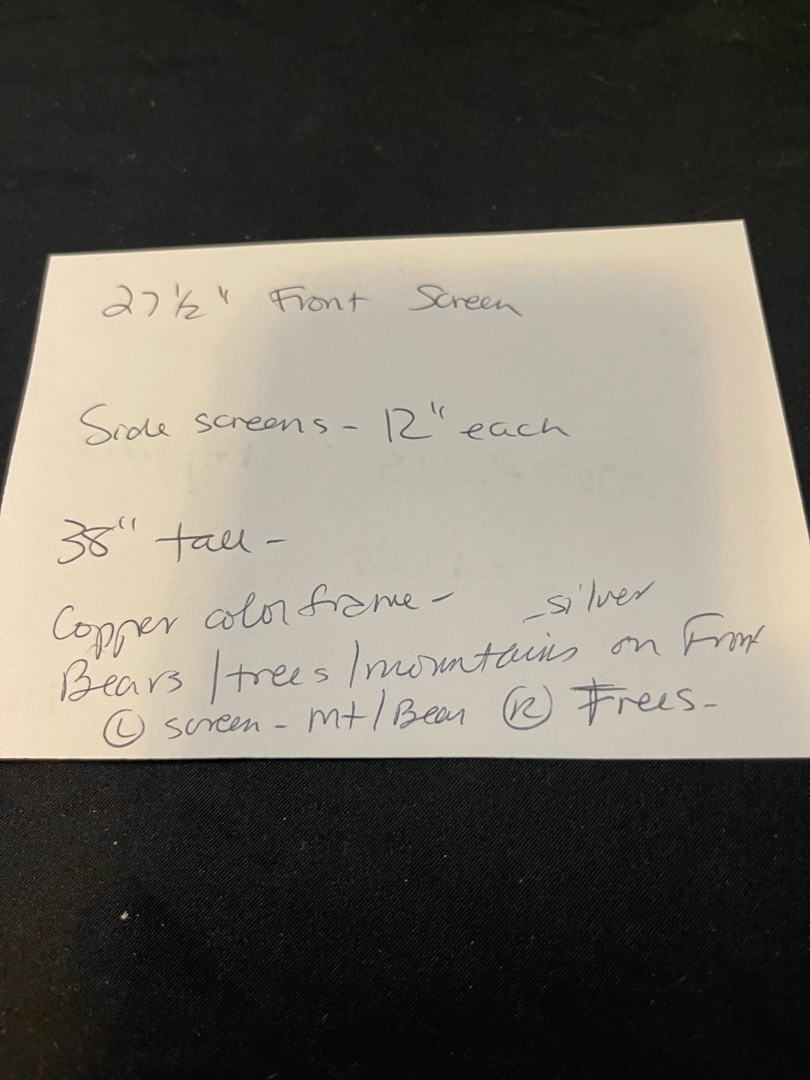 27 1/2" Front Screen
Side screens - 12" each
38" tall -
Copper color frame - - silver
Bears / trees / mountains on Front
(L) screen - mt / Bear (R) Trees -